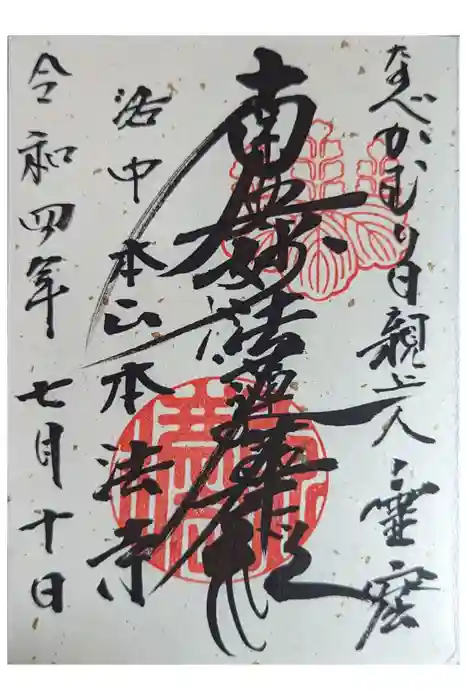 なべかむり日親上人霊窟
南無妙法蓮華経
洛中 本山本法寺
令和四年 七月十日